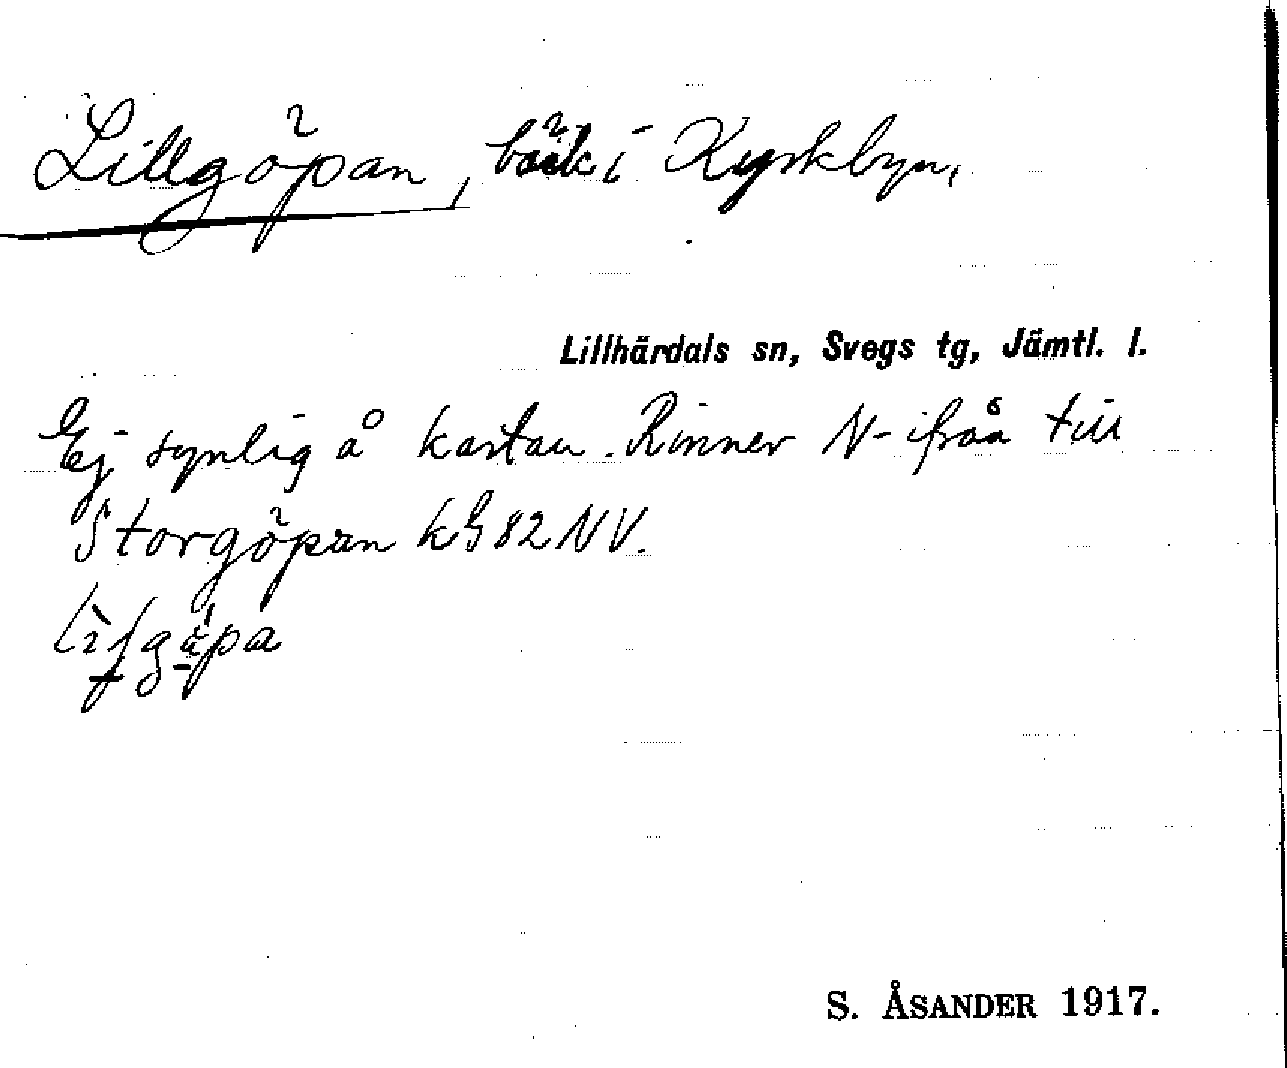 Lillgöpan, bäck i Kyrkbyn,
Lillhärdals sn, Svegs tg, Jämtl. l.
Ej synlig å kartan. Rinner N-ifrån till
Storgöpan kG82NV.
S. ÅSANDER 1917.